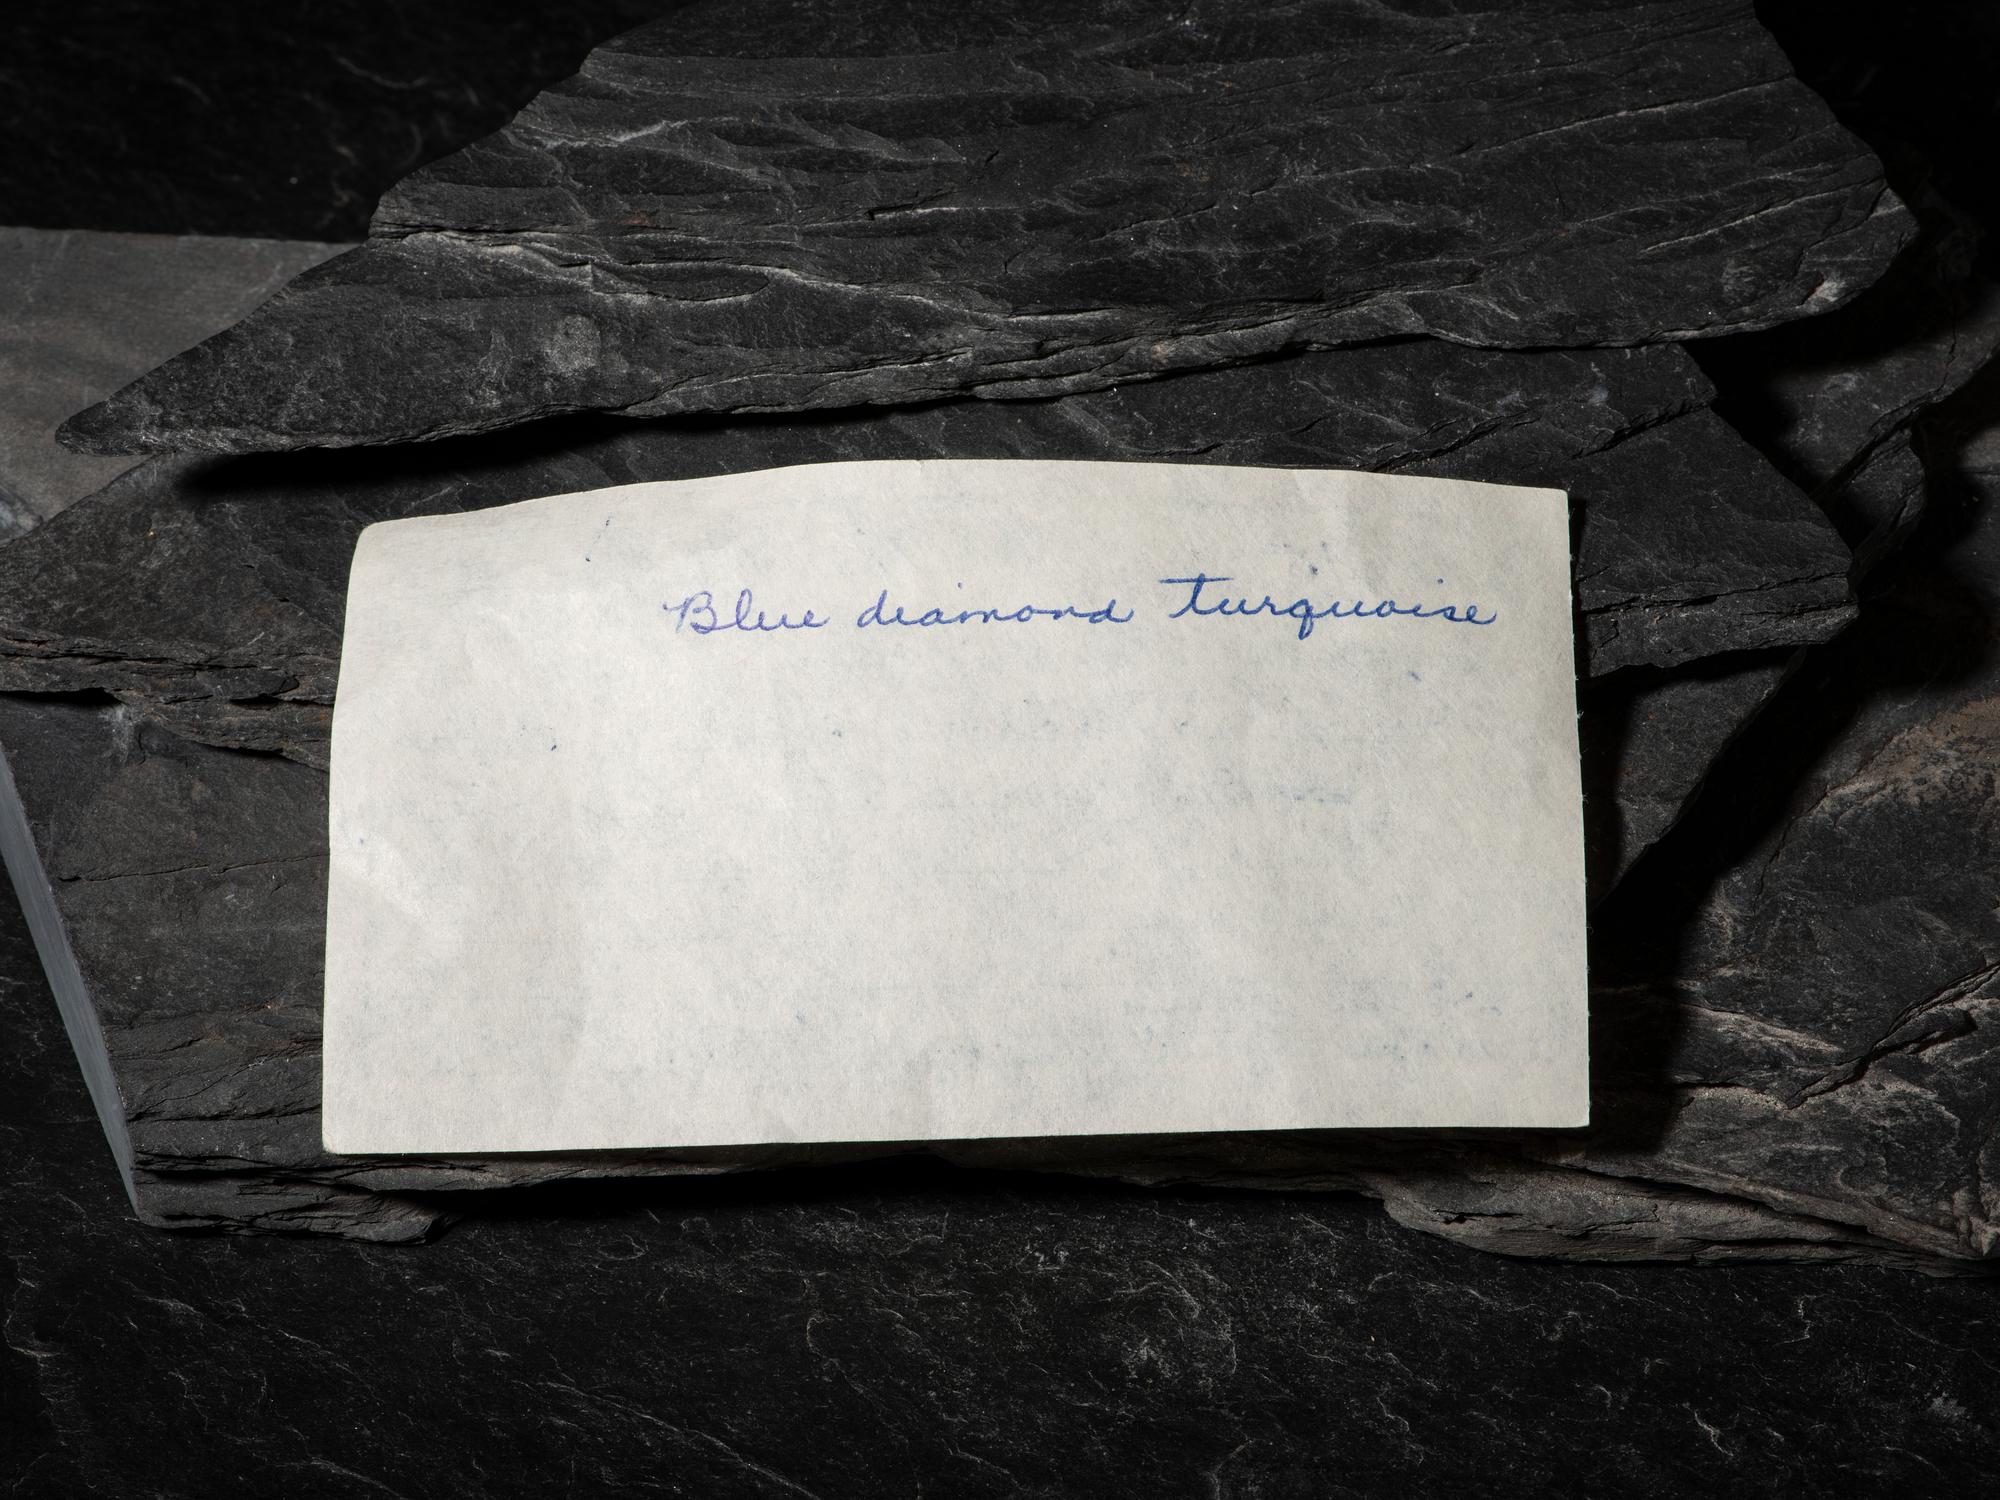 Blue diamond turquoise